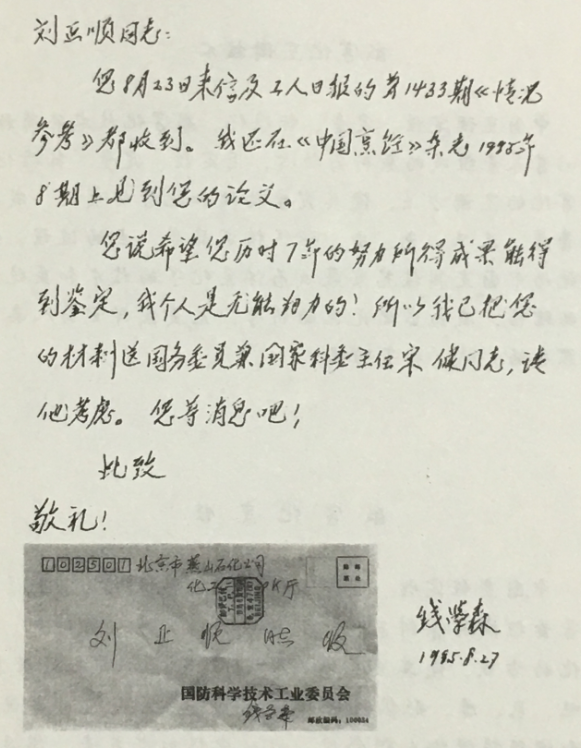 刘正顺同志:
您8月23日来信及工人日报的第1433期《情况
参考》都收到。我还在《中国烹饪》杂志1995年
8期上见到您的论文。
您说希望您历时7年的努力所得成果能得
到鉴定,我个人是无能为力的!所以我已把您
的材料送国务委员兼国家科委主任宋健同志,请
他考虑。您等消息吧!
此致
敬礼!
102501 北京市燕山石化公司
刘正顺同志收
钱学森
1995.8.27
国防科学技术工业委员会
钱学森 邮政编码:100034